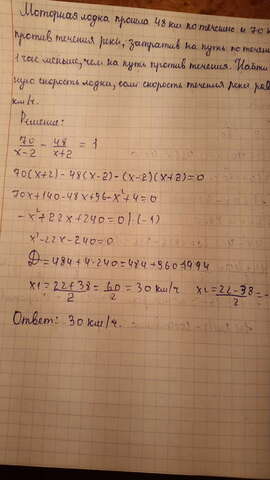 Моторная лодка прошла 48 км по течению и 70 к
против течения реки, затратив на путь по течени
1 час меньше, чем на путь против течения. Найти
ную скорость лодки, если скорость течения реки рав
км/ч.
Решение:
70/x-2 - 48/x+2 = 1
70(x+2) - 48(x-2) - (x-2)(x+2)=0
70x+140-48x+96-x²+4=0
-x²+22x+240=0 | (-1)
x²-22x-240=0
Д=484+4·240=484+960=1444
x1=22+38/2=60/2=30 км/ч x2=22-38/2=-
Ответ: 30 км/ч.